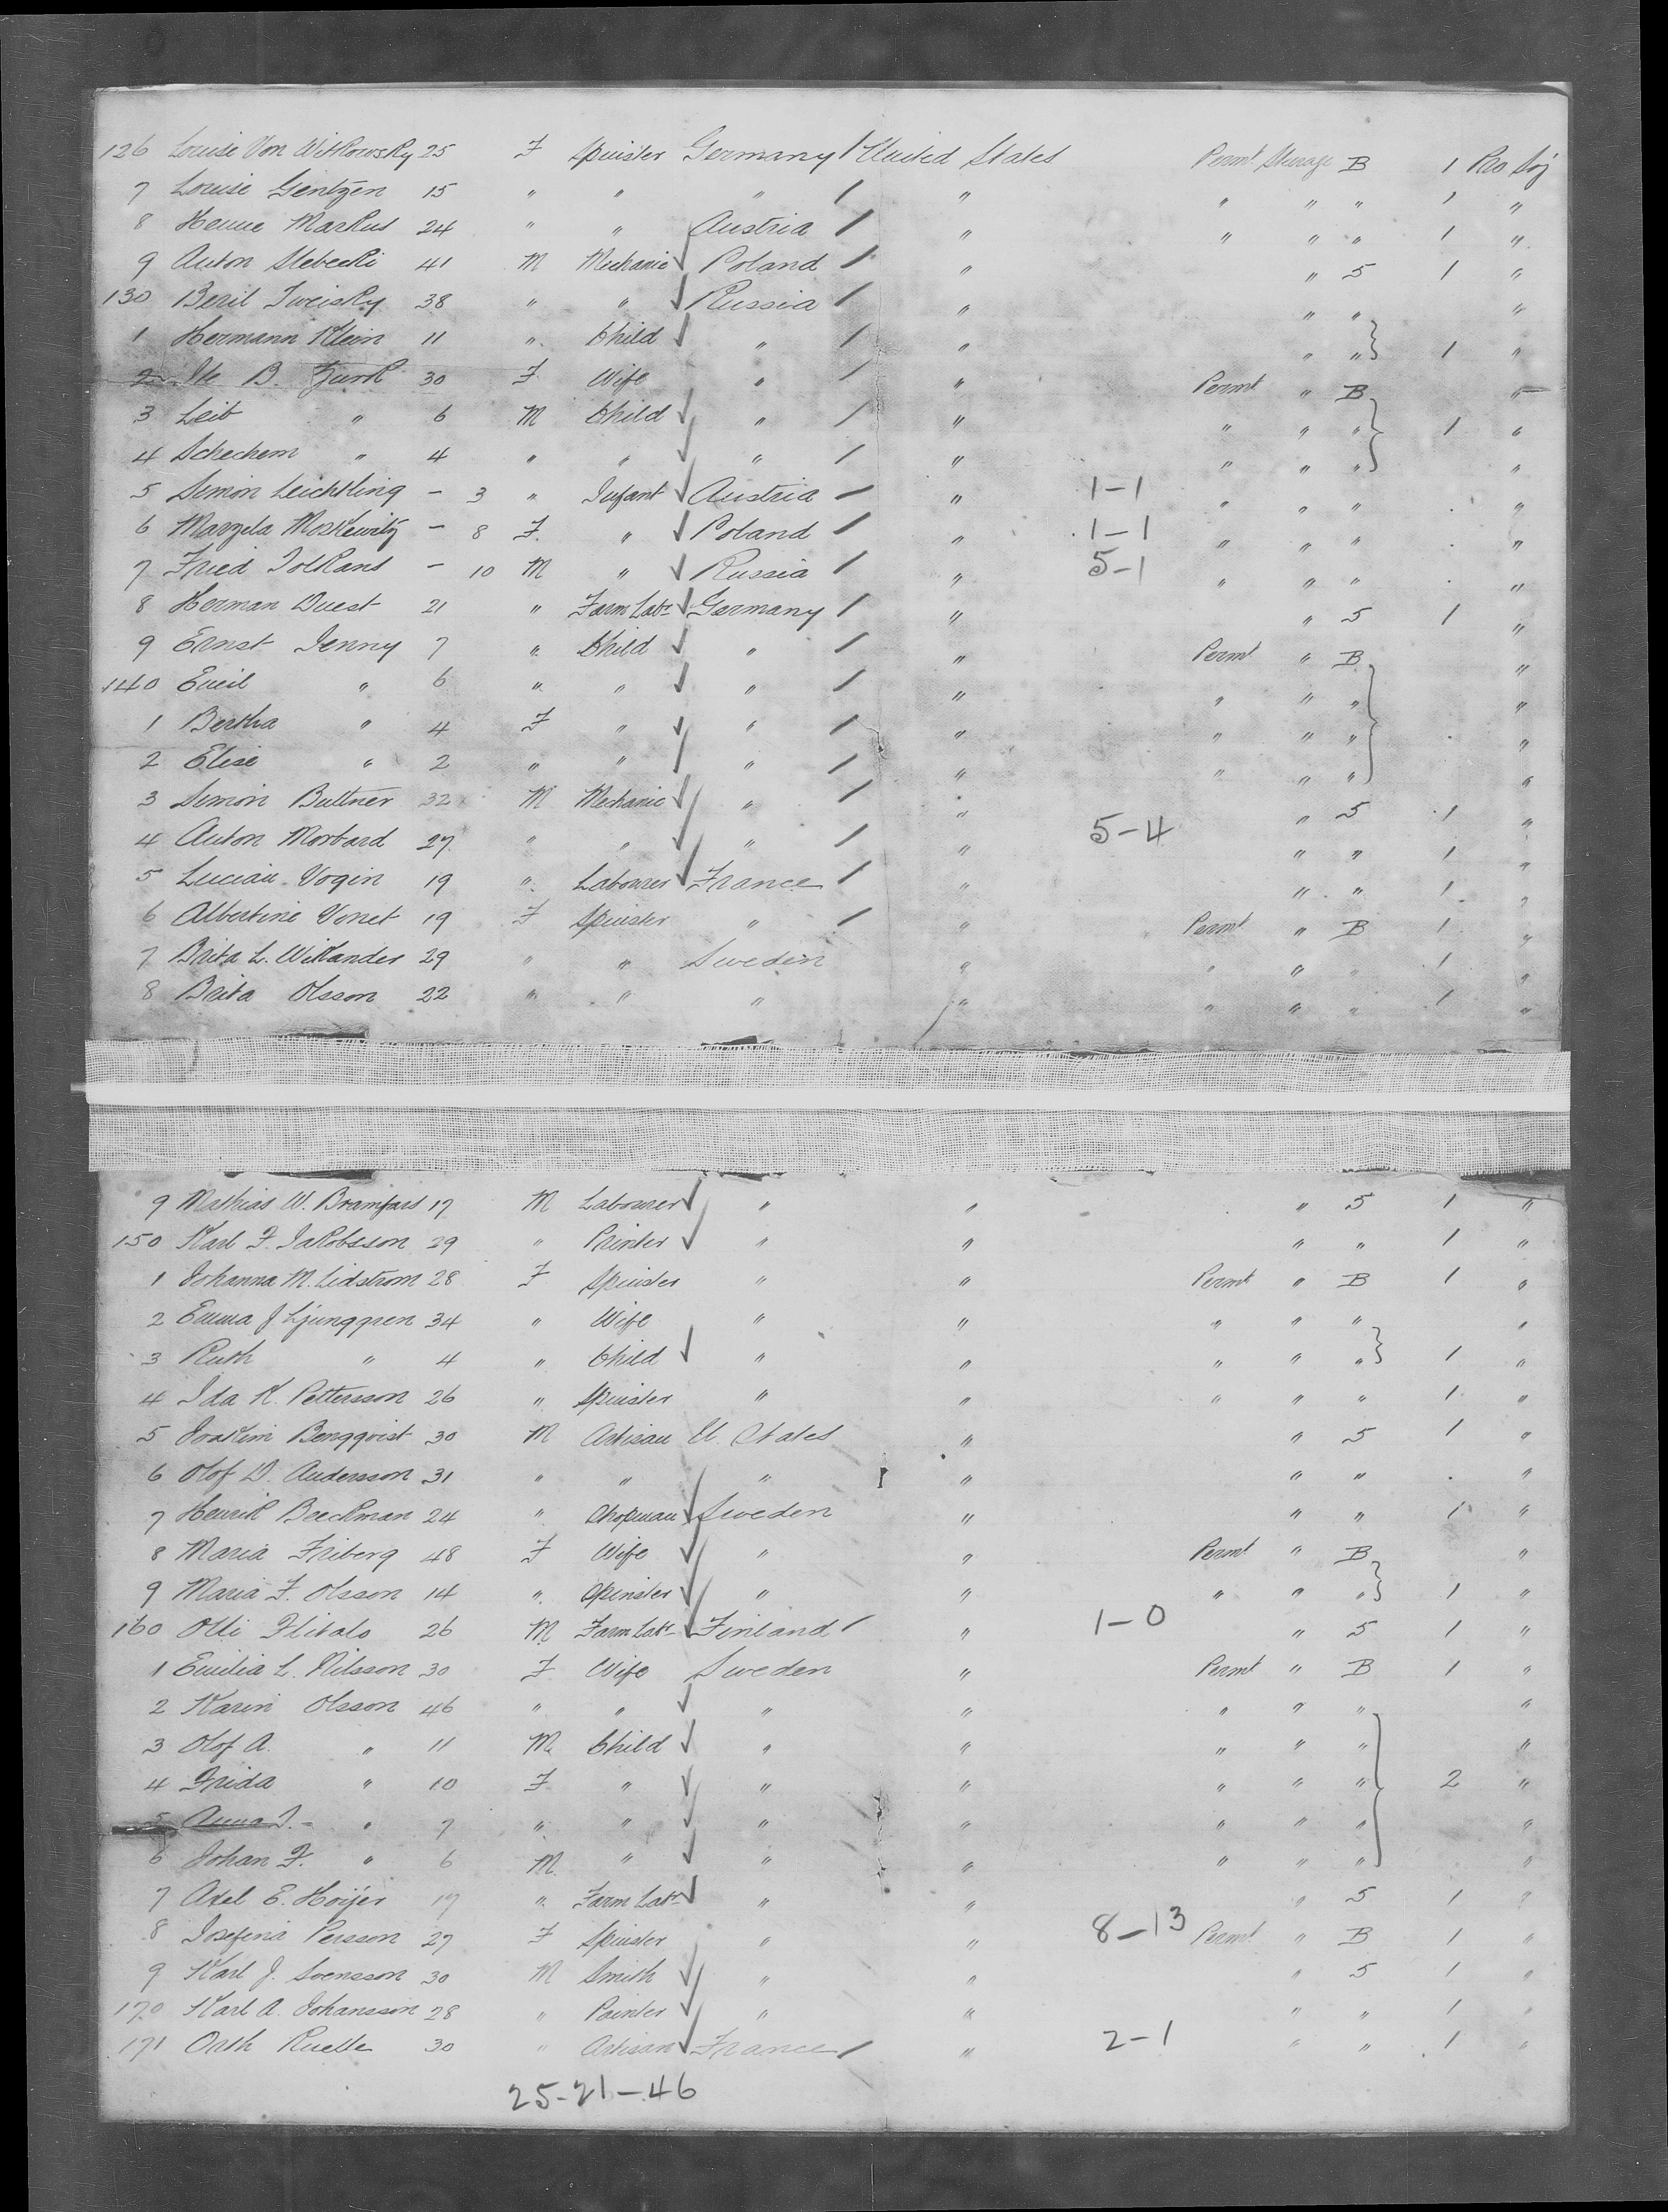 126 Louise Von Witkowsky 25 F Spinster Germany / United States Permt Steerage B 1 Pro Soj
7 Louise Gentzen 15 " " " / " " " " 1 "
8 Henne Markus 24 " " Austria / " " " " 1 "
9 Anton Slebecki 41 M Mechanic Poland / " " 5 1 "
130 Beril Iweisky 38 " " Russia / " " " "
1 Hermann Klein 11 " Child " / " " " 1 "
2 Ite B. Turk 30 F Wife " / " Permt " B "
3 Leib " 6 M Child " / " " " " 1 "
4 Schechem " 4 " " " / " " " " "
5 Simon Leichtling - 3 " Infant Austria / " 1-1 " " " "
6 Marzela Moskewitz - 8 F. " Poland / " 1-1 " " " "
7 Fried - 10 M " Russia / " 5-1 " " " "
8 Herman Duest 21 " Farm Labr Germany / " " 5 1 "
9 Ernst Jenny 7 " Child " / " Permt " B "
140 Emil " 6 " " " / " " " " "
1 Bertha " 4 F " " / " " " " "
2 Elise " 2 " " " / " " " " "
3 Simon Buttner 32 M Mechanic " / " " 5 1 "
4 Anton Morbard 27 " " " / " 5-4 " " 1 "
5 Lucian Vogin 19 " Labourer France / " " " 1 "
6 Albertine Vonet 19 F Spinster " / " Permt " B 1 "
7 Brita L. Wikander 29 " " Sweden " " " " 1 "
8 Brita Olsson 22 " " " " " " " 1 "
9 Mathias W. Bramfars 17 M Labourer " " " 5 1 "
150 Karl F. Jakobsson 29 " Printer " " " " 1 "
1 Johanna M. Lidstrom 28 F Spinster " " Permt " B 1 "
2 Emma J Ljunggren 34 " Wife " " " " " "
3 Ruth " 4 " Child " " " " " 1 "
4 Ida K. Pettersson 26 " Spinster " " " " " 1 "
5 Joakim Bengqvist 30 M Artisan U. States " " 5 1 "
6 Olof D. Andersson 31 " " " " " " "
7 Henrik Beckman 24 " Shopman Sweden " " " 1 "
8 Maria Friberg 48 F Wife " " Permt " B "
9 Maria F. Olsson 14 " Spinster " " " " " 1 "
160 Otti Flitalo 26 M Farm Labr Finland / " 1-0 " 5 1 "
1 Emilia L. Nilsson 30 F Wife Sweden " Permt " B 1 "
2 Karin Olsson 46 " " " " " " " "
3 Olof A. " 11 M. Child " " " " " "
4 Frida " 10 F " " " " " " 2 "
5 Anna I. " 7 " " " " " " " "
6 Johan F. " 6 M. " " " " " " "
7 Axel E. Hoijer 17 " Farm Labr " " " 5 1 "
8 Josefina Persson 27 F Spinster " " 8-13 Permt " B 1 "
9 Karl J. Svensson 30 M Smith " " " 5 1 "
170 Karl A. Johansson 28 " Painter " " " " 1 "
171 Orth Ruelle 30 " Artisan France / " 2-1 " " 1 "
25-21-46